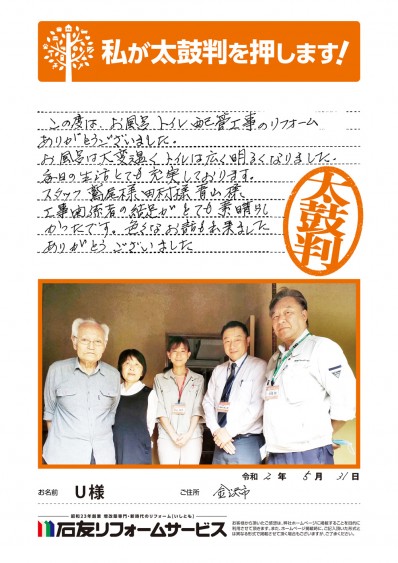 私が太鼓判を押します!
この度は、お風呂トイレ配管工事のリフォーム
ありがとうございました。
お風呂は大変温く トイレは広く明るくなりました。
毎日の生活とても充実しております。
スタッフ鷲尾様田村様青山様
工事関係者の結足がとても素晴らし
かったです。色々なお話も出来ました
ありがとうございました
太鼓判
令和 2 年 5 月 31 日
お名前 U様 ご住所 金沢市
昭和23年創業 増改築専門・新時代のリフォーム[いしとも]
石友リフォームサービス